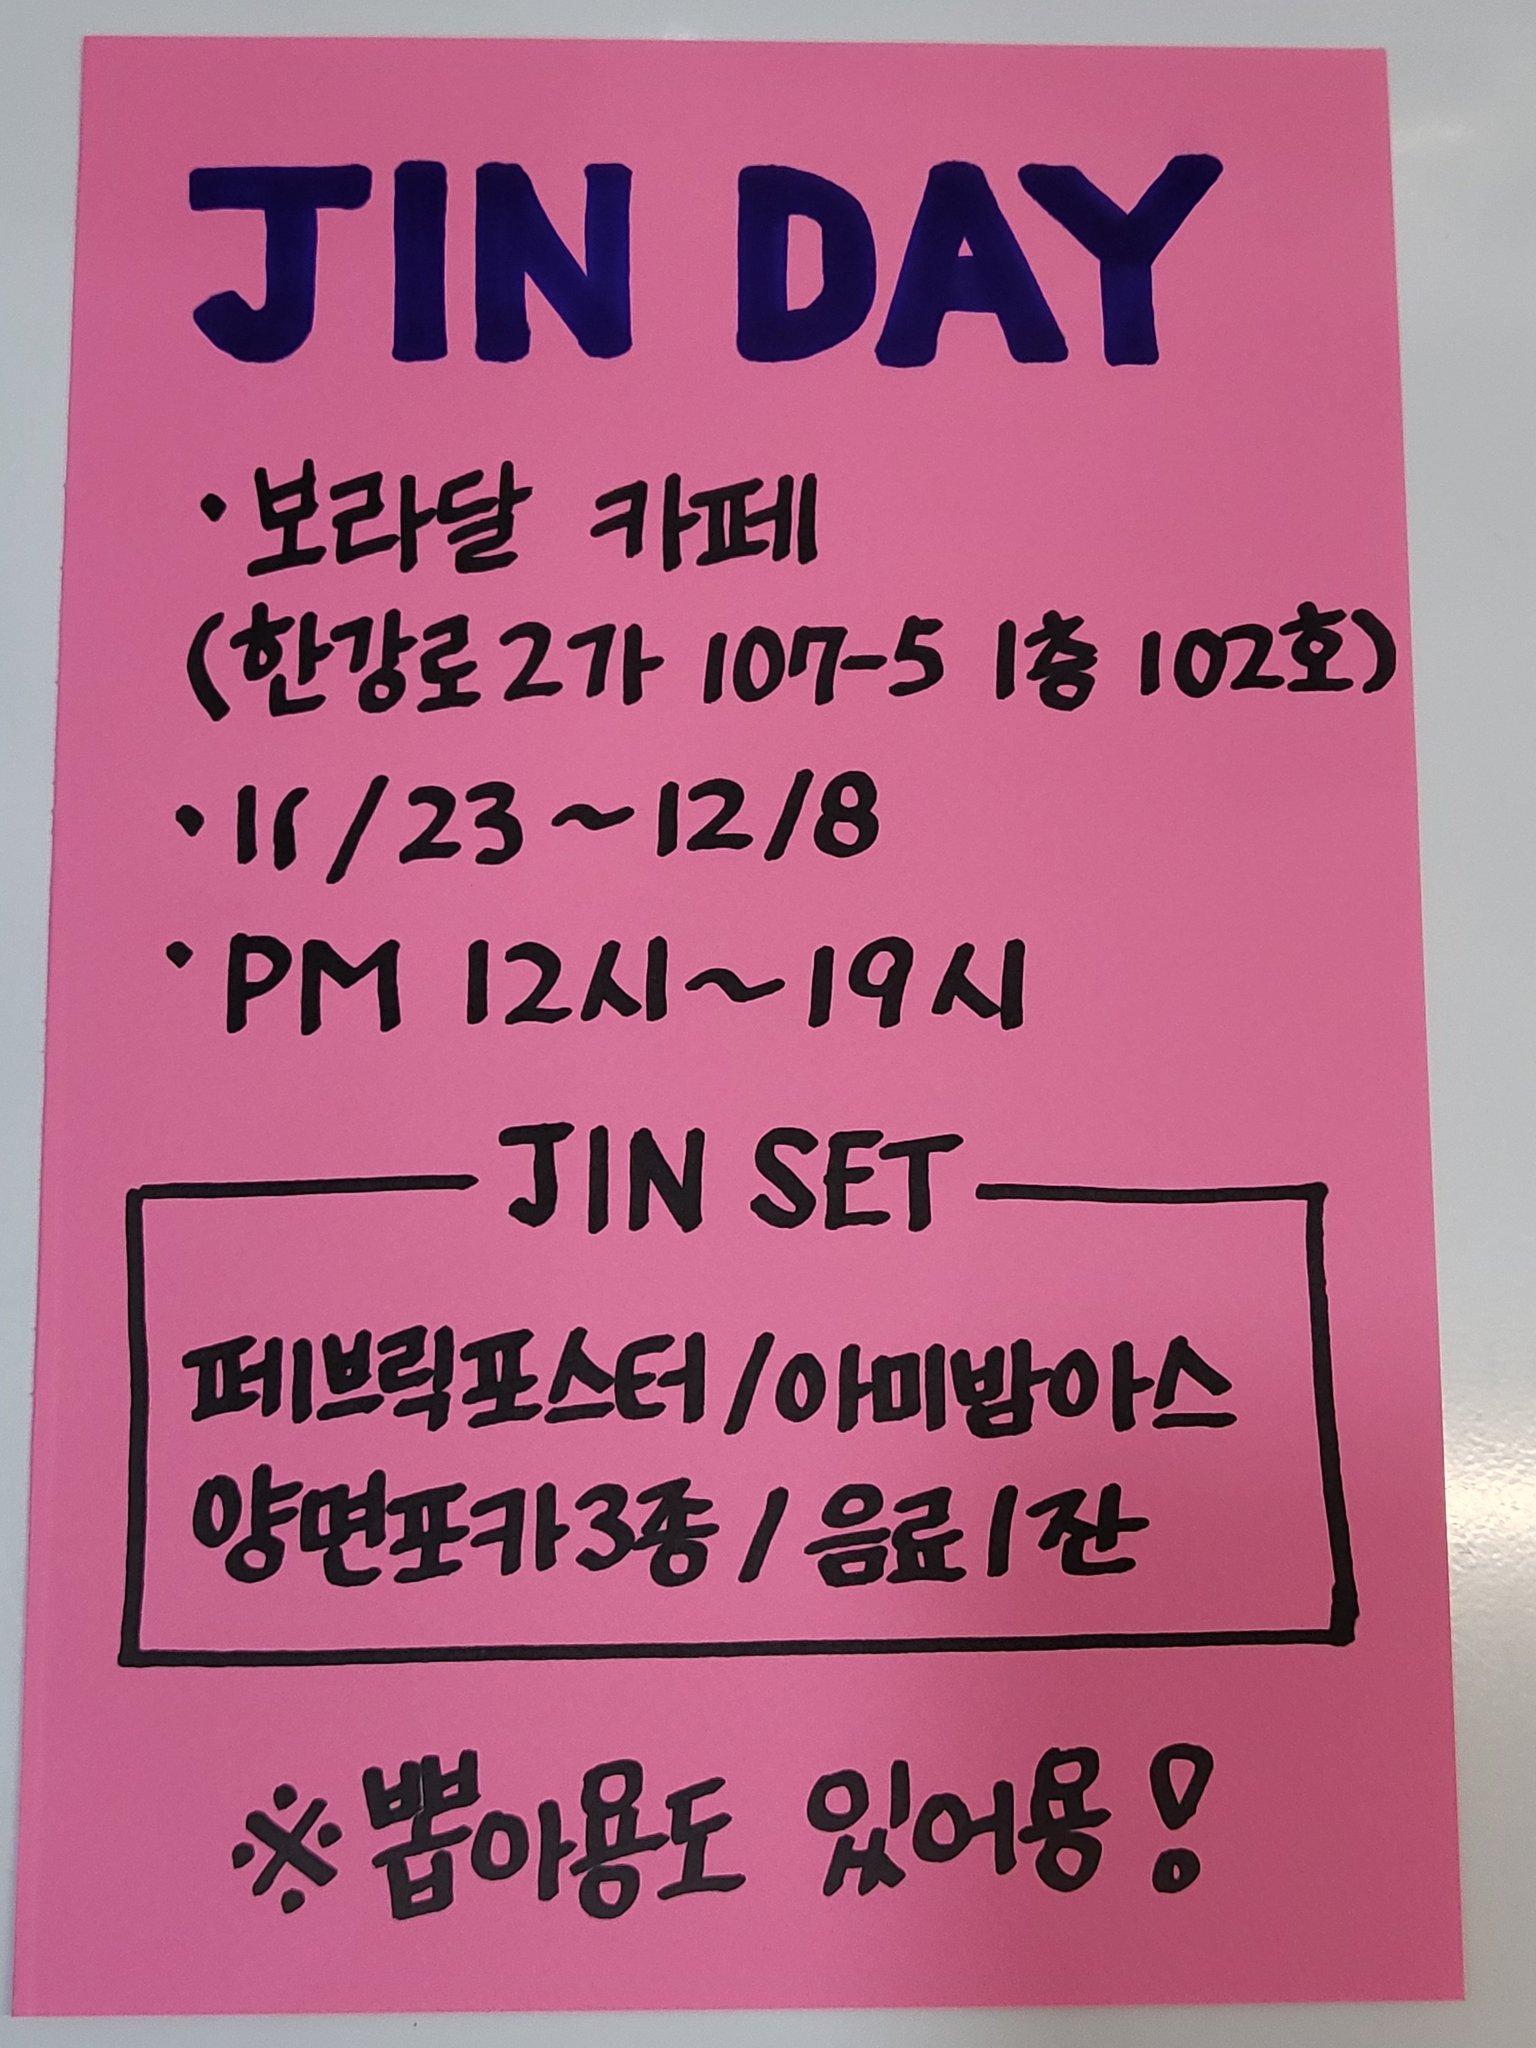 JIN DAY
· 보라달 카페
(한강로2가 107-5 1층 102호)
· 11/23~12/8
· PM 12시~19시
JIN SET
페브릭포스터/아미밤아스
양면포카3종/음료1잔
※뽑아용도 있어용!